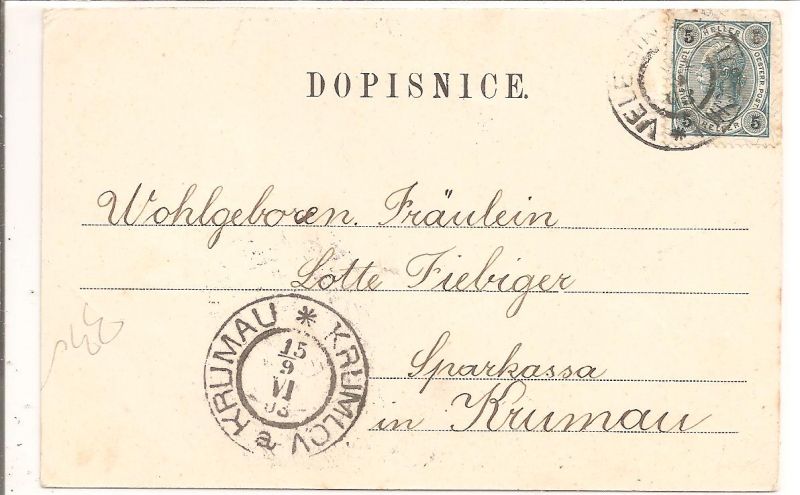 DOPISNICE.
5 HELLER 5
OESTERR. POST
5 HELLER 5
Wohlgeboren. Fräulein
Lotte Fiebiger
Sparkassa
in Krumau
KRUMAU * KRUMLOV a
15
9
VI
03